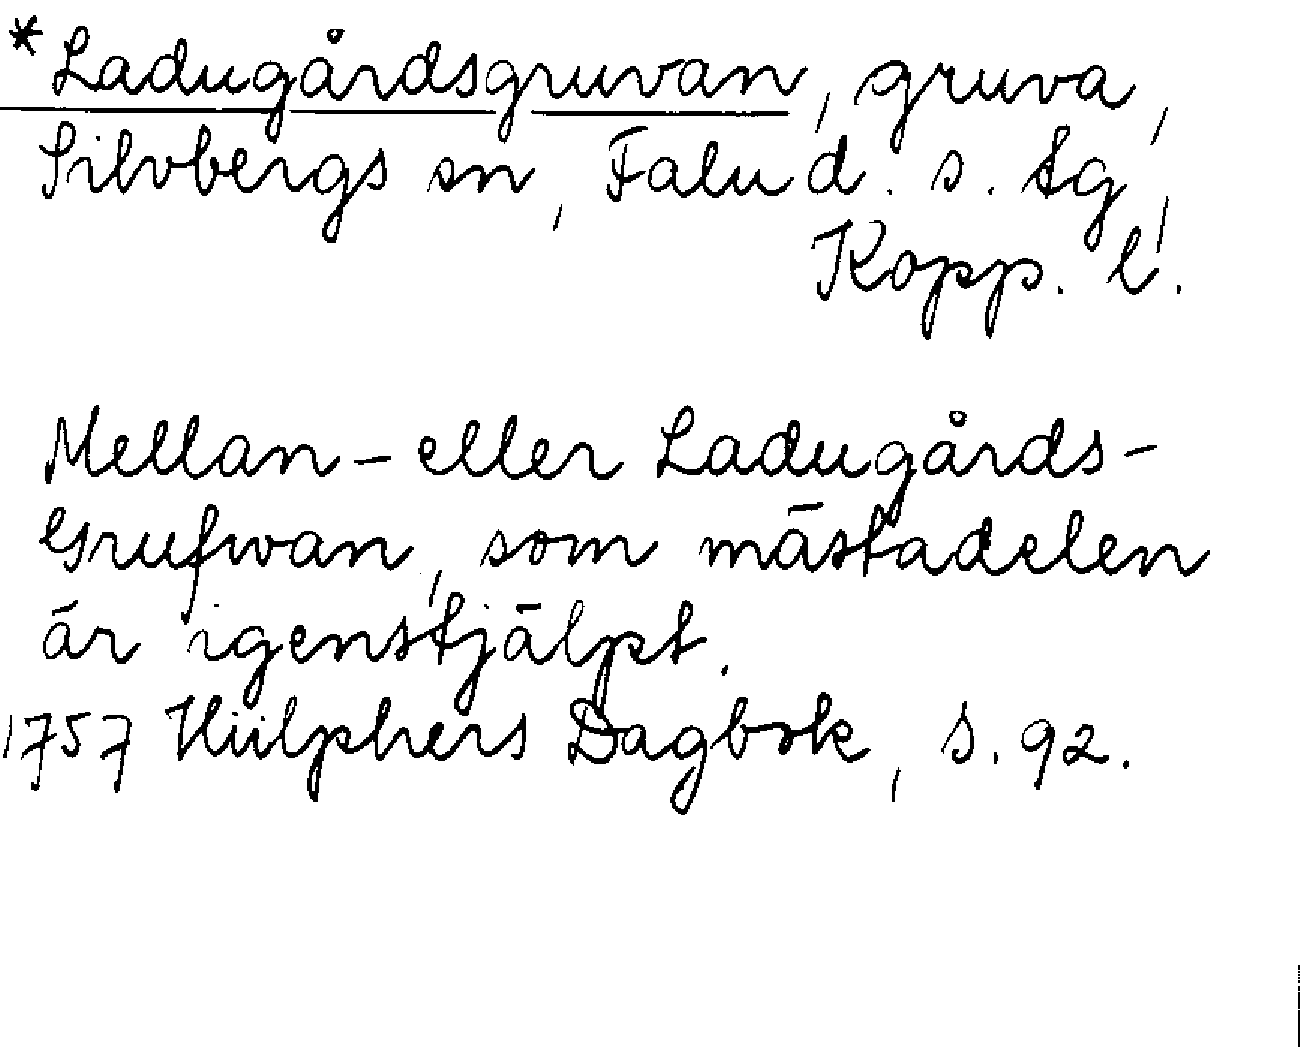 *Ladugårdsgruvan, gruva,
Silvbergs sn, Falu d. s. tg,
Kopp. l.
Mellan- eller Ladugårds-
Grufwan, som mästadelen
är igenstjälpt.
1757 Hülphers Dagbok, s. 92.